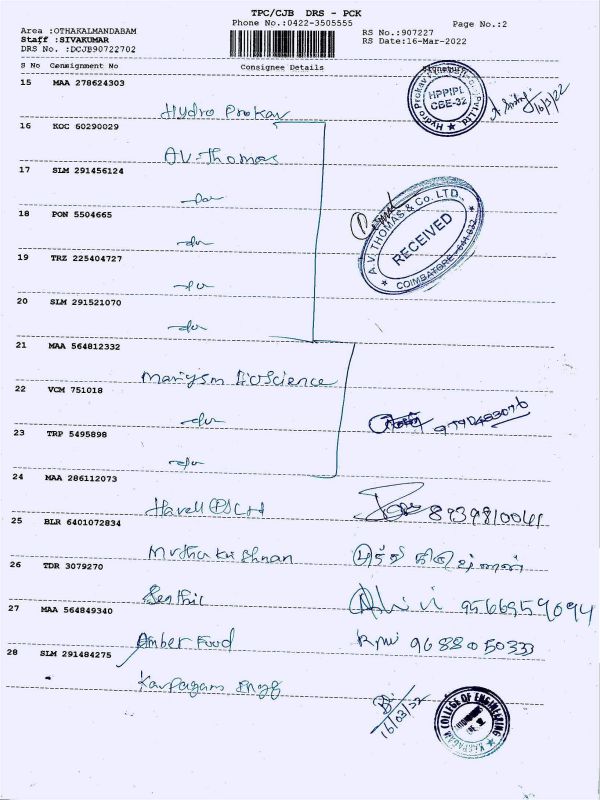 TPC/CJB DRS - PCK
Phone No.:0422-3505555
Page No.:2
Area :OTHAKALMANDABAM
Staff :SIVAKUMAR
DRS No. :DCJB90722702
RS No.:907227
RS Date:16-Mar-2022
S No Consignment No Consignee Details
15 MAA 278624303
Hydro Prokav
HPPIPL
CBE-32
16/3/22
16 KOC 60290029
AV-Thomas
17 SLM 291456124
-do-
18 PON 5504665
-do-
A.V. THOMAS & Co. LTD.,
RECEIVED
COIMBATORE - 641 032
19 TRZ 225404727
-do-
20 SLM 291521070
-do-
21 MAA 564812332
Bioscience
22 VCM 751018
-do-
23 TRP 5495898
-do-
24 MAA 286112073
Havell
8939810041
25 BLR 6401072834
Muthu Krishnan
26 TDR 3079270
Senthil
9566959094
27 MAA 564849340
Amber Food
9688050333
28 SLM 291484275
Karpagam Engg
16/03/22
KARPAGAM COLLEGE OF ENGINEERING